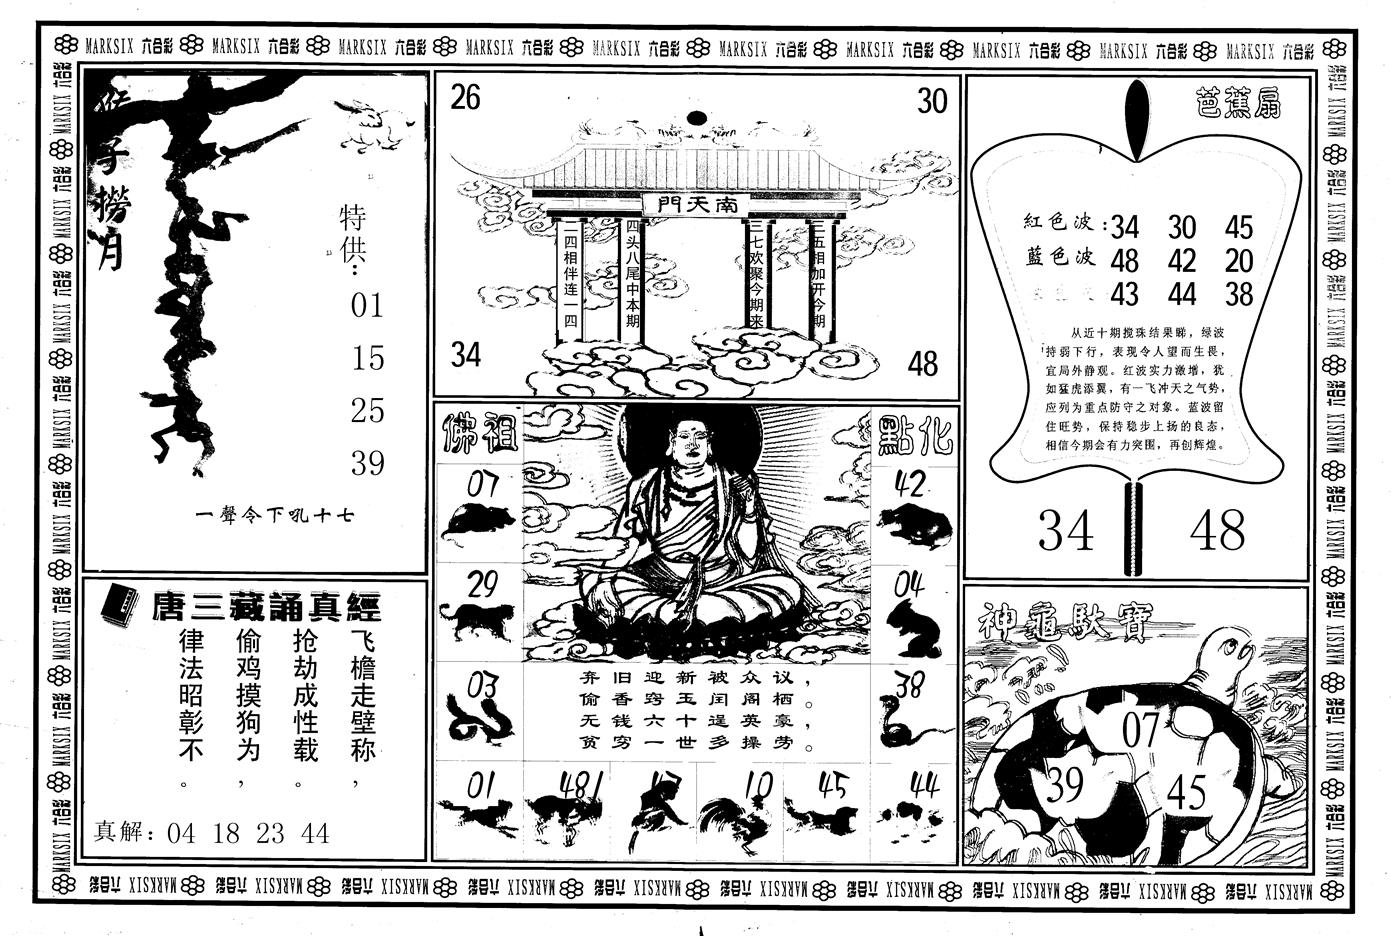 MARKSIX 六合彩 MARKSIX 六合彩 MARKSIX 六合彩 MARKSIX 六合彩 MARKSIX 六合彩 MARKSIX 六合彩 MARKSIX 六合彩 MARKSIX 六合彩 MARKSIX 六合彩 MARKSIX 六合彩
猴子撈月
特供:
01
15
25
39
一聲令下吼十七
唐三藏誦真經
飞檐走壁称，
抢劫成性载。
偷鸡摸狗为，
律法昭彰不。
真解: 04 18 23 44
26
30
南天門
二四相伴连一四
四头八尾中本期
三七欢聚今期来
三五相加开今期
34
48
佛祖
點化
07
42
29
04
03
38
弃旧迎新被众议，
偷香窃玉闰阁栖。
无钱六十逞英豪，
贫穷一世多操劳。
01
10
45
44
芭蕉扇
紅色波:34 30 45
藍色波 48 42 20
43 44 38
从近十期搅珠结果睇，绿波
持弱下行，表现令人望而生畏，
宜局外静观。红波实力激增，犹
如猛虎添翼，有一飞冲天之气势，
应列为重点防守之对象。蓝波留
住旺势，保持稳步上扬的良态，
相信今期会有力突围，再创辉煌。
34 48
神龜馱寶
07
39
45